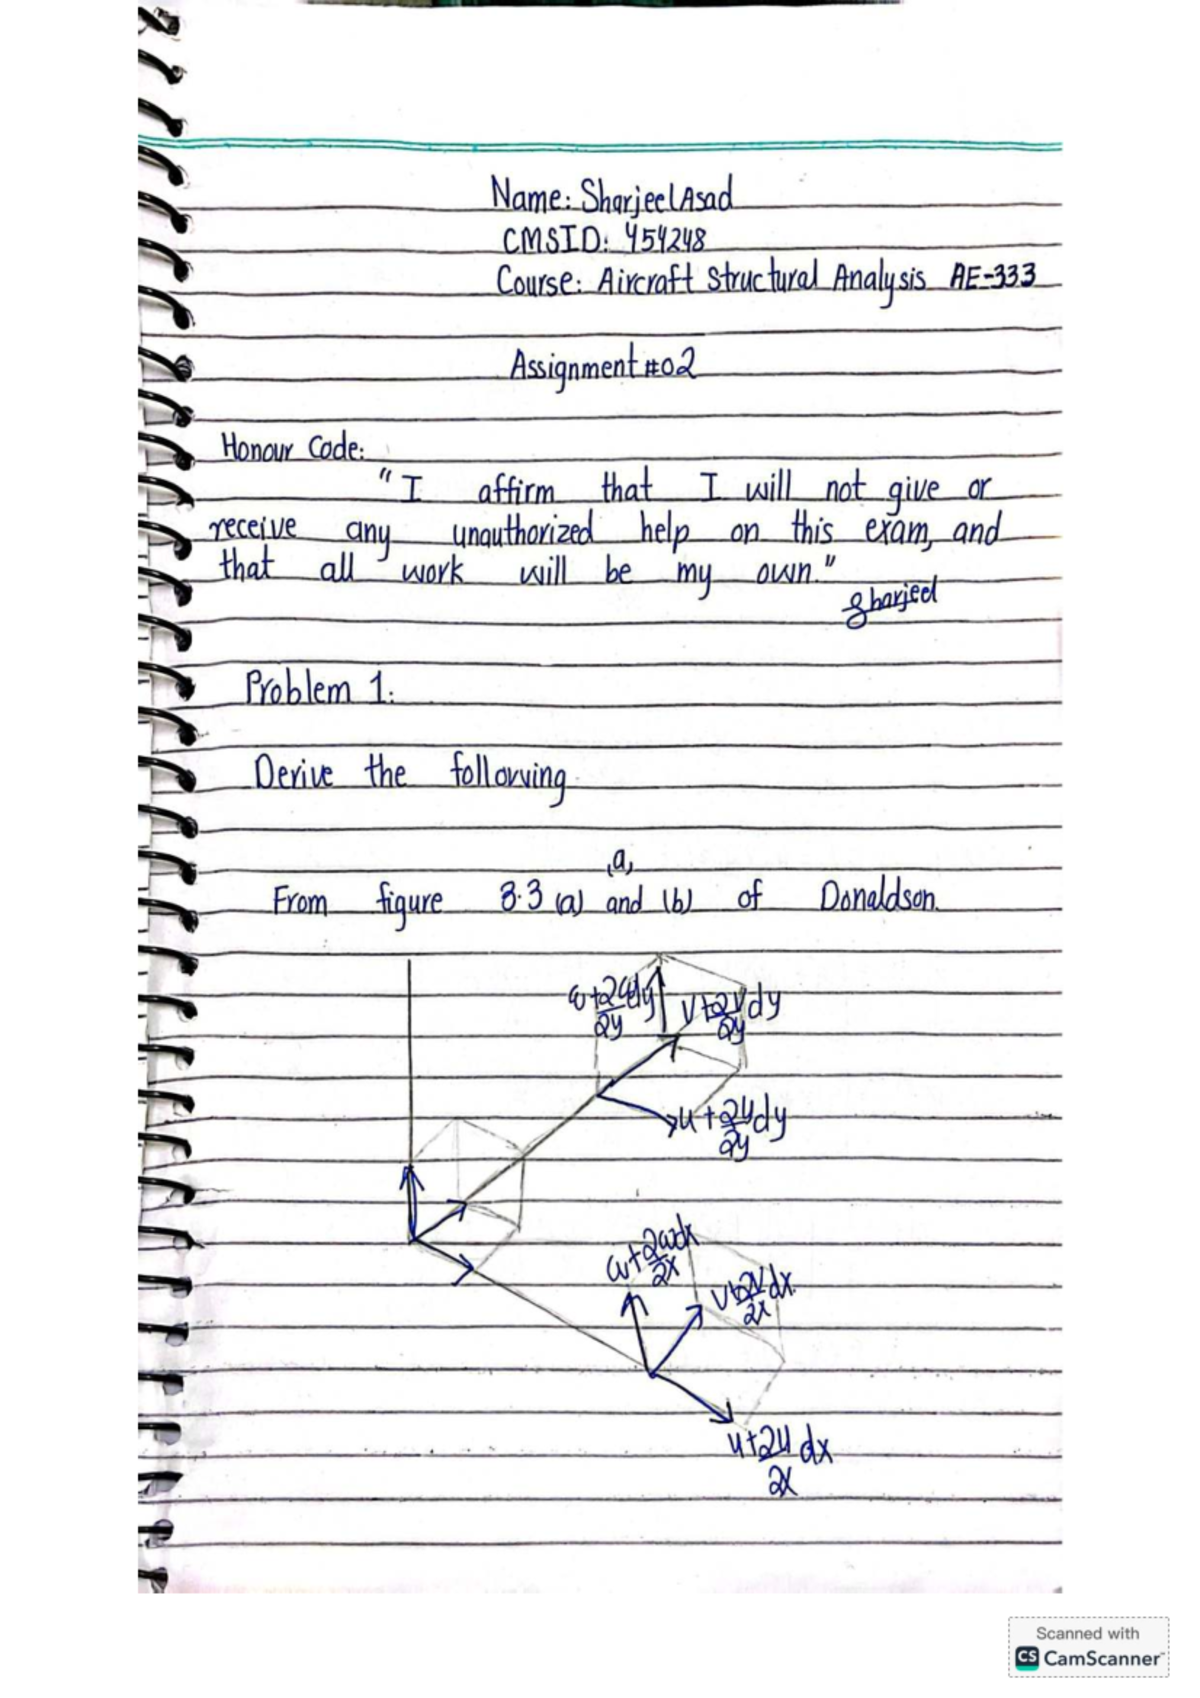 Name: Sharjeel Asad
CMSID: 454248
Course: Aircraft Structural Analysis AE-333
Assignment #02
Honour Code:
"I affirm that I will not give or
receive any unauthorized help on this exam, and
that all work will be my own."
Sharjeel
Problem 1:
Derive the following
(a)
From figure 3.3 (a) and (b) of Donaldson.
ω+∂ω/∂y dy
V+∂V/∂y dy
u+∂u/∂y dy
ω+∂ω/∂x dx
V+∂V/∂x dx
u+∂u/∂x dx
Scanned with
CS CamScanner™